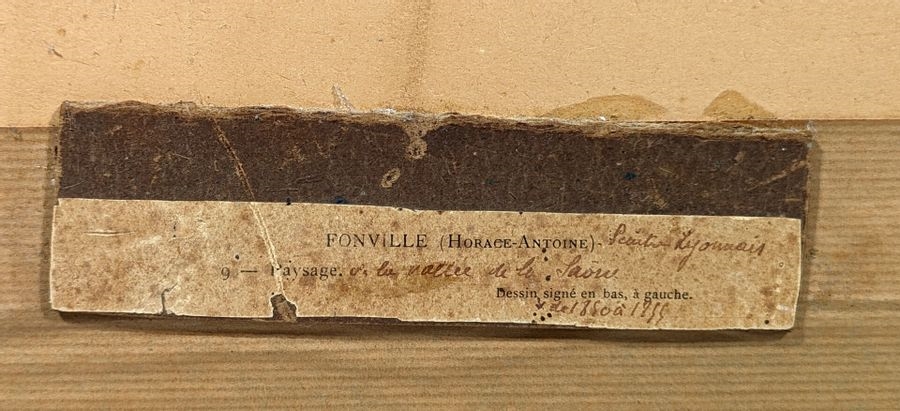 FONVILLE (HORACE-ANTOINE)- Peintre Lyonnais
9 — Paysage. de la vallée de la Saone
Dessin signé en bas, à gauche.
de 1850 à